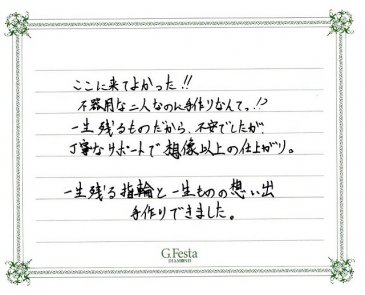 ここに来てよかった!!
不器用な二人なのに手作りなんてっ!?
一生残るものだから、不安でしたが、
丁寧なサポートで想像以上の仕上がり。
一生残る指輪と一生ものの想い出
手作りできました。
G.Festa
DIAMOND